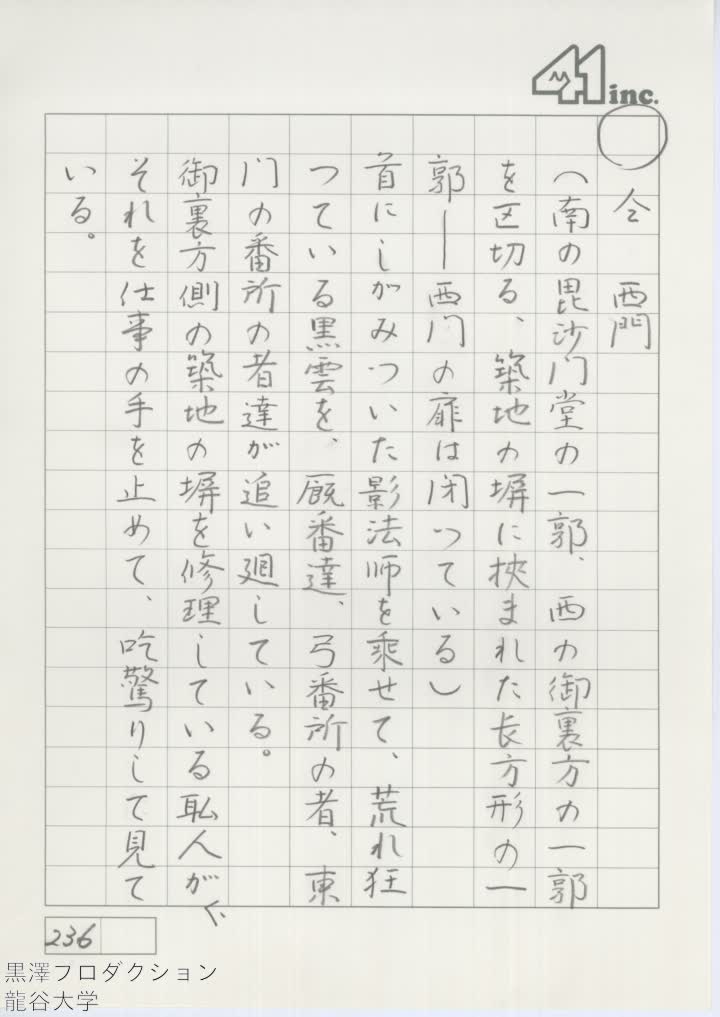 41 inc.
仝 西門
(南の毘沙門堂の一郭、西の御裏方の一郭
を区切る、築地の塀に挾まれた長方形の一
郭――西門の扉は閉つている)
首にしがみついた影法師を乘せて、荒れ狂
つている黒雲を、厩番達、弓番所の者、東
門の番所の者達が追い廻している。
御裏方側の築地の塀を修理している耺人が、
それを仕事の手を止めて、吃驚りして見て
いる。
236
黒澤プロダクション
龍谷大学